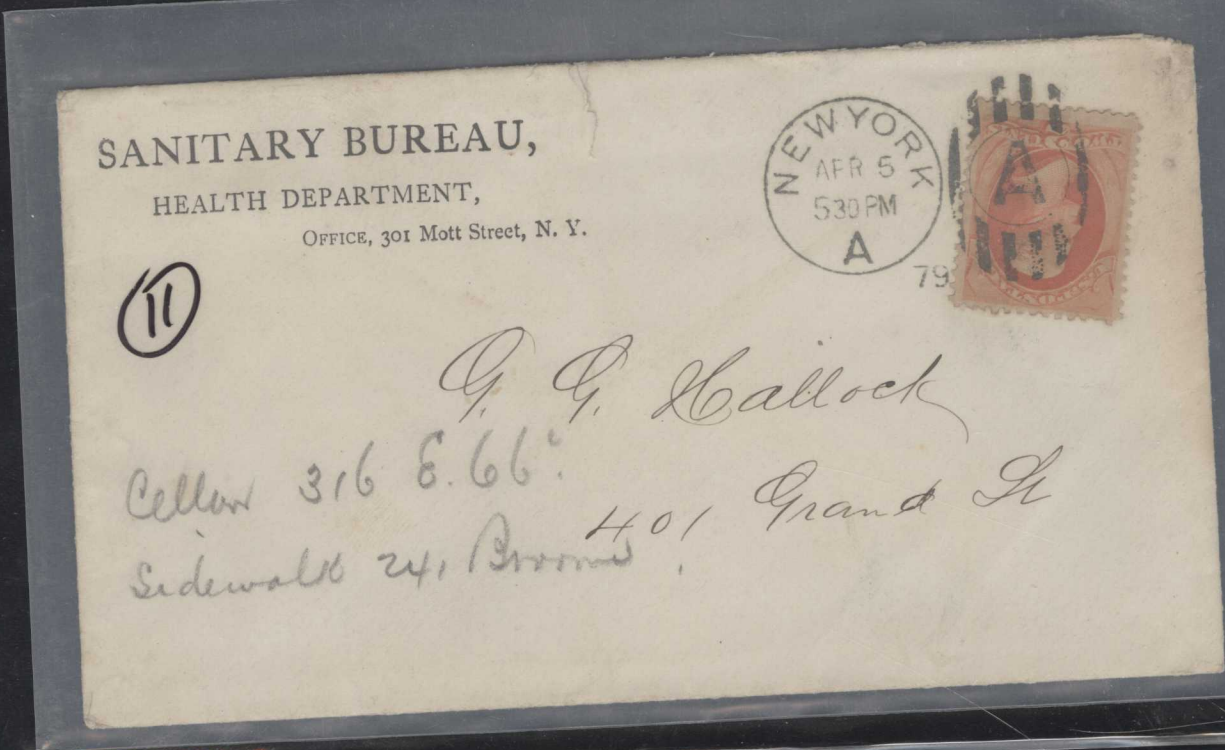 SANITARY BUREAU,
HEALTH DEPARTMENT,
OFFICE, 301 Mott Street, N. Y.
NEW YORK
APR 5
530 PM
A
79
A
11
G. G. Hallock
401 Grand St
Cellar 316 E. 66"
Sidewalk 241 Broome